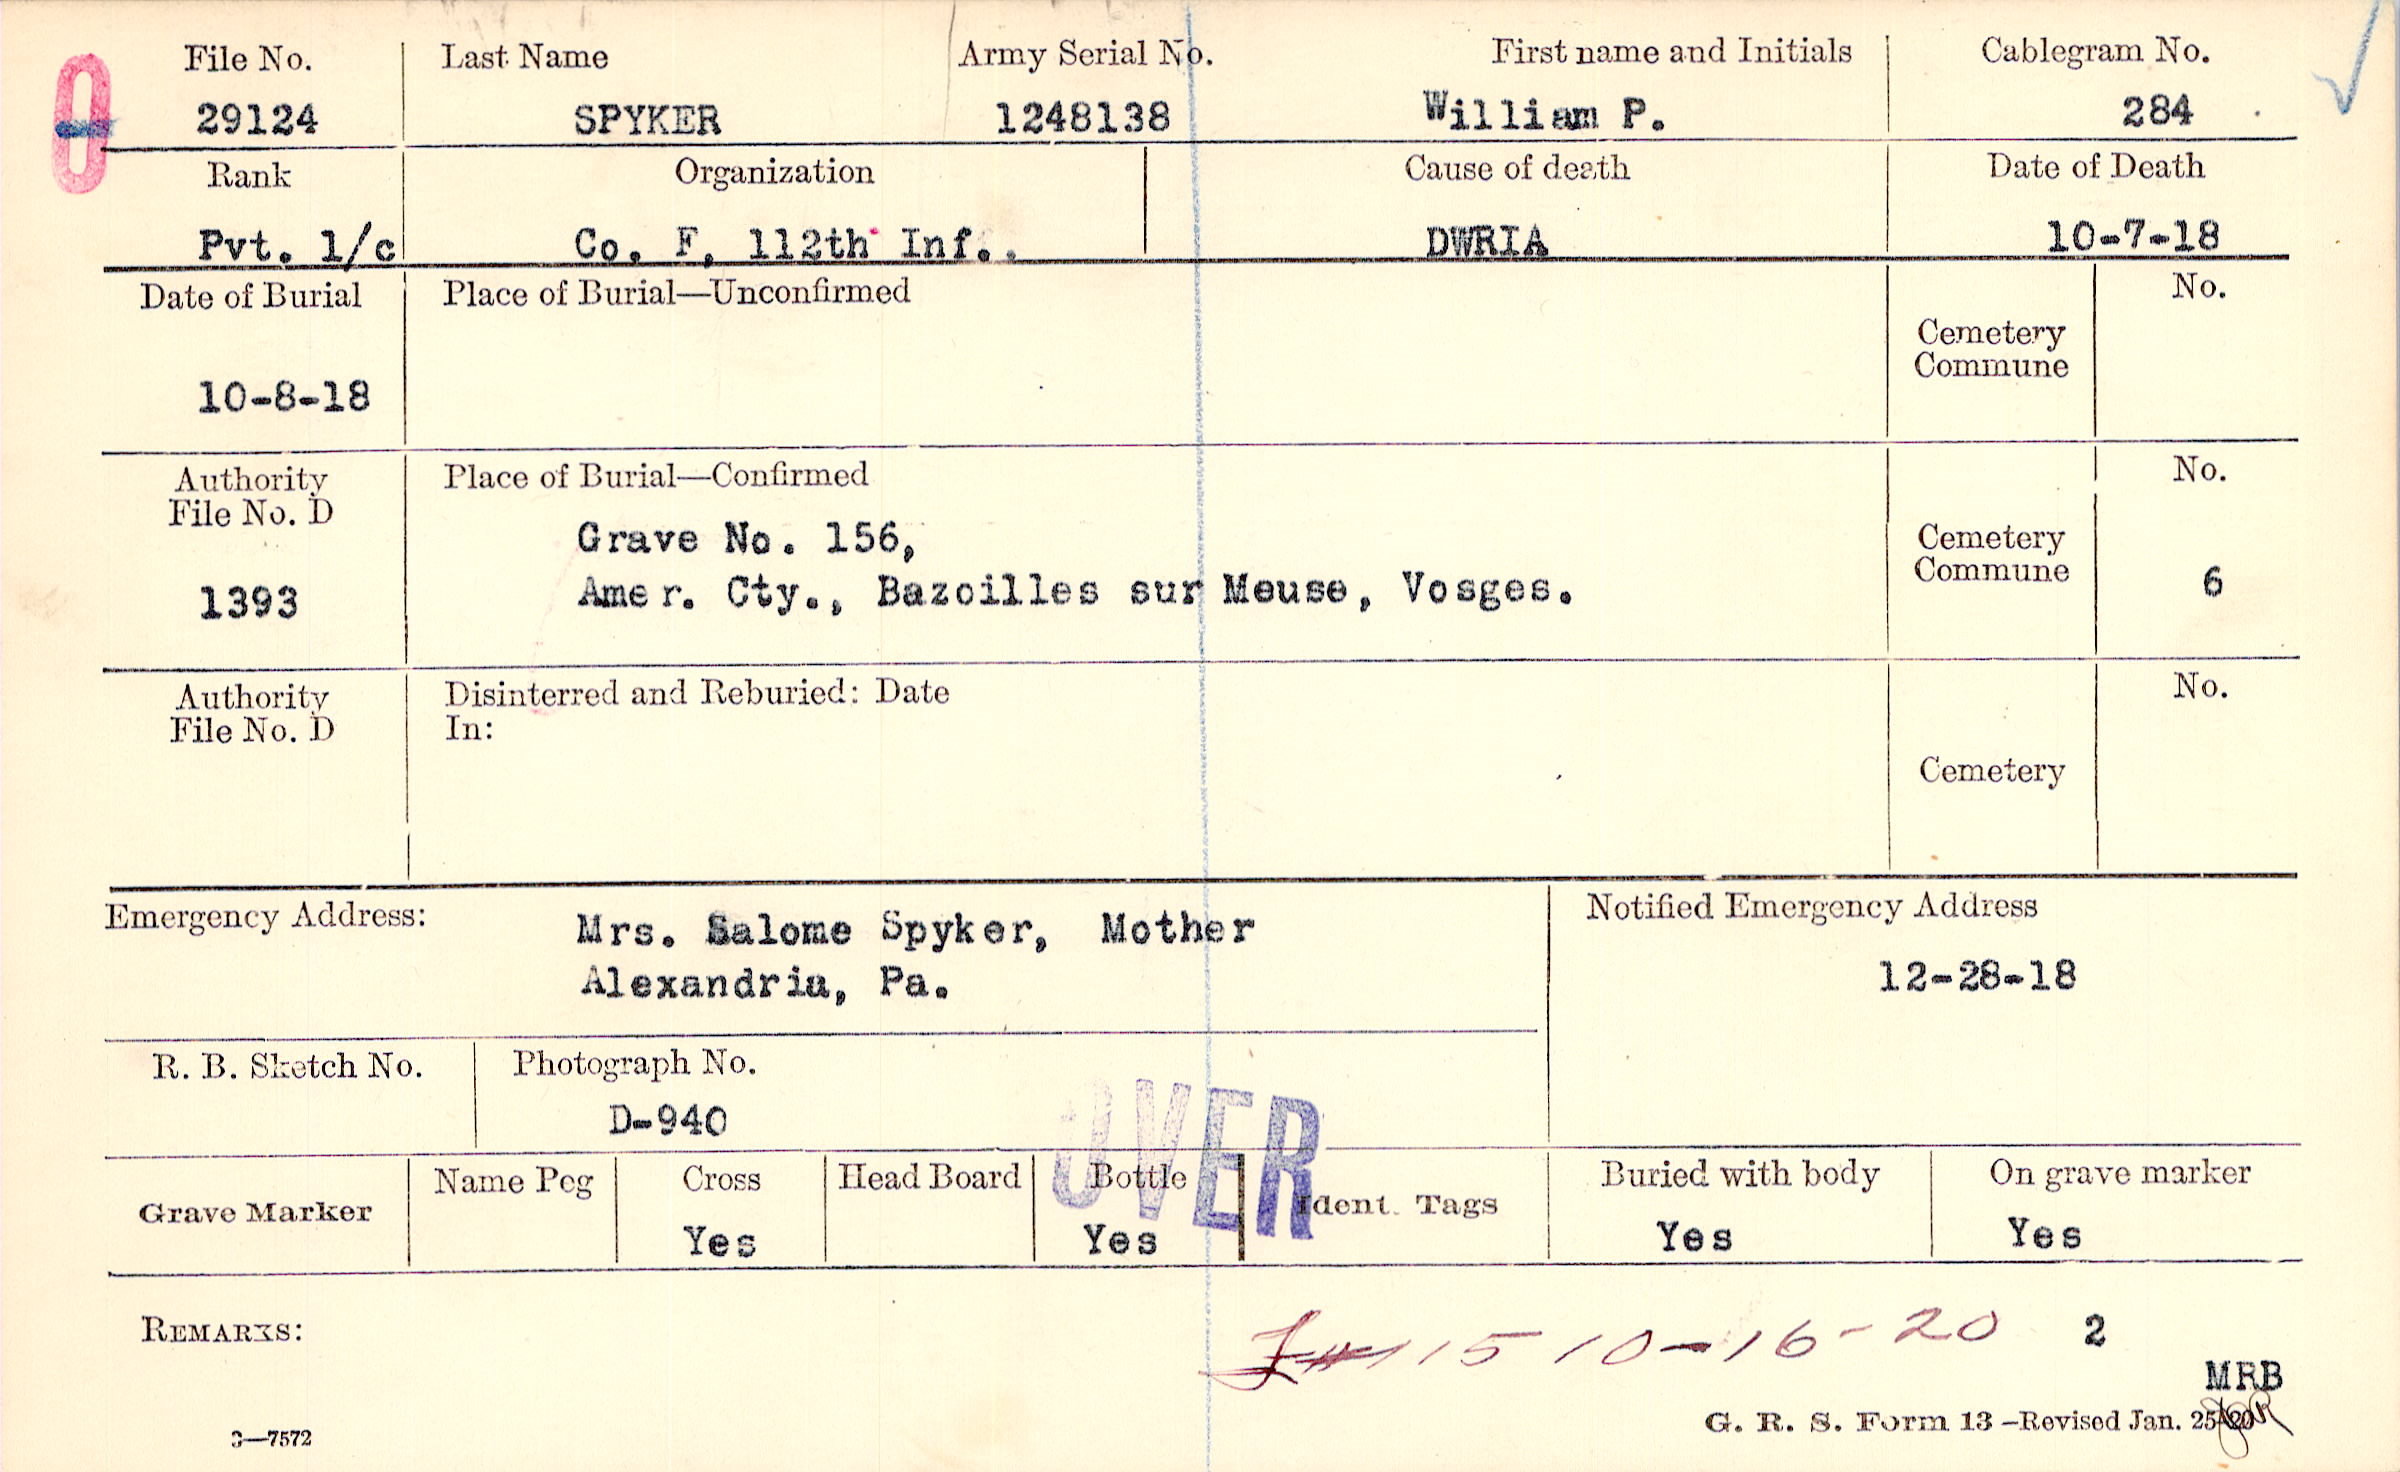 File No. Last Name Army Serial No. First name and Initials Cablegram No.
29124 SPYKER 1248138 William P. 284
Rank Organization Cause of death Date of Death
Pvt. 1/c Co. F, 112th Inf.. DWRIA 10-7-18
Date of Burial Place of Burial—Unconfirmed No.
Cemetery
Commune
10-8-18
Authority Place of Burial—Confirmed No.
File No. D
Grave No. 156, Cemetery
1393 Amer. Cty., Bazoilles sur Meuse, Vosges. Commune 6
Authority Disinterred and Reburied: Date No.
File No. D In:
Cemetery
Emergency Address: Mrs. Salome Spyker, Mother Notified Emergency Address
Alexandria, Pa. 12-28-18
R. B. Sketch No. Photograph No.
D-940
OVER
Grave Marker Name Peg Cross Head Board Bottle Ident. Tags Buried with body On grave marker
Yes Yes Yes Yes
REMARKS: 15 10-16-20 2
MRB
3—7572 G. R. S. Form 13—Revised Jan. 25-20